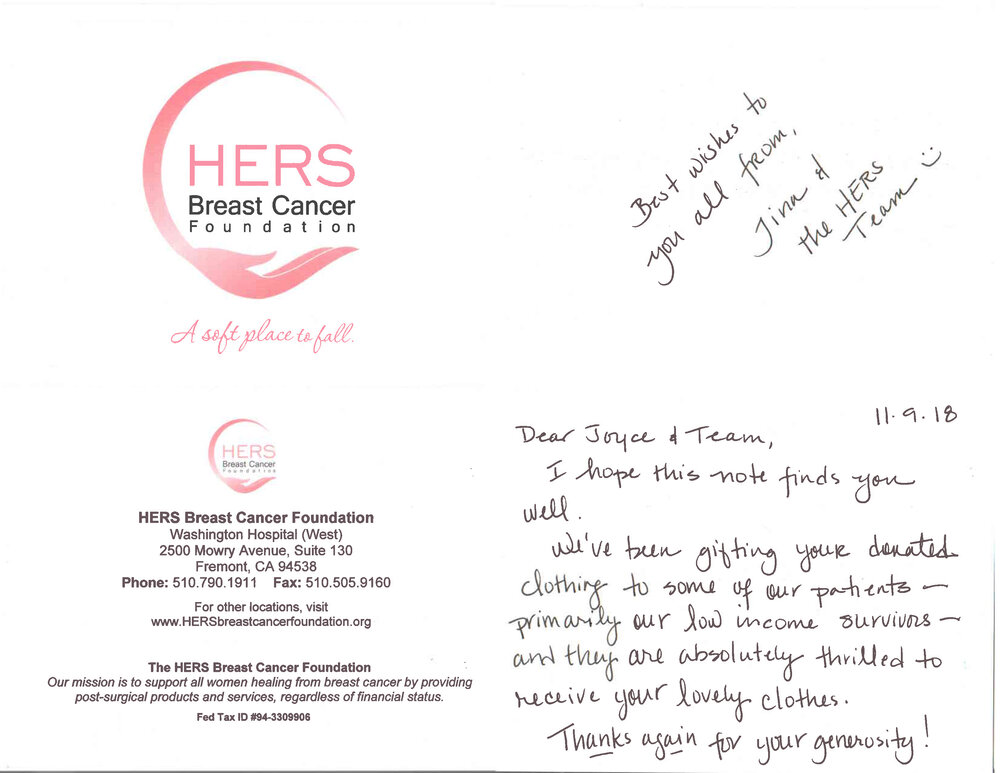 HERS
Breast Cancer
Foundation
A soft place to fall.
Best wishes to
you all from,
Tina &
the HERS
Team
HERS
Breast Cancer
Foundation
HERS Breast Cancer Foundation
Washington Hospital (West)
2500 Mowry Avenue, Suite 130
Fremont, CA 94538
Phone: 510.790.1911 Fax: 510.505.9160
For other locations, visit
www.HERSbreastcancerfoundation.org
The HERS Breast Cancer Foundation
Our mission is to support all women healing from breast cancer by providing
post-surgical products and services, regardless of financial status.
Fed Tax ID #94-3309906
11.9.18
Dear Joyce & Team,
I hope this note finds you
well.
We've been gifting your donated
clothing to some of our patients —
primarily our low income survivors —
and they are absolutely thrilled to
receive your lovely clothes.
Thanks again for your generosity!